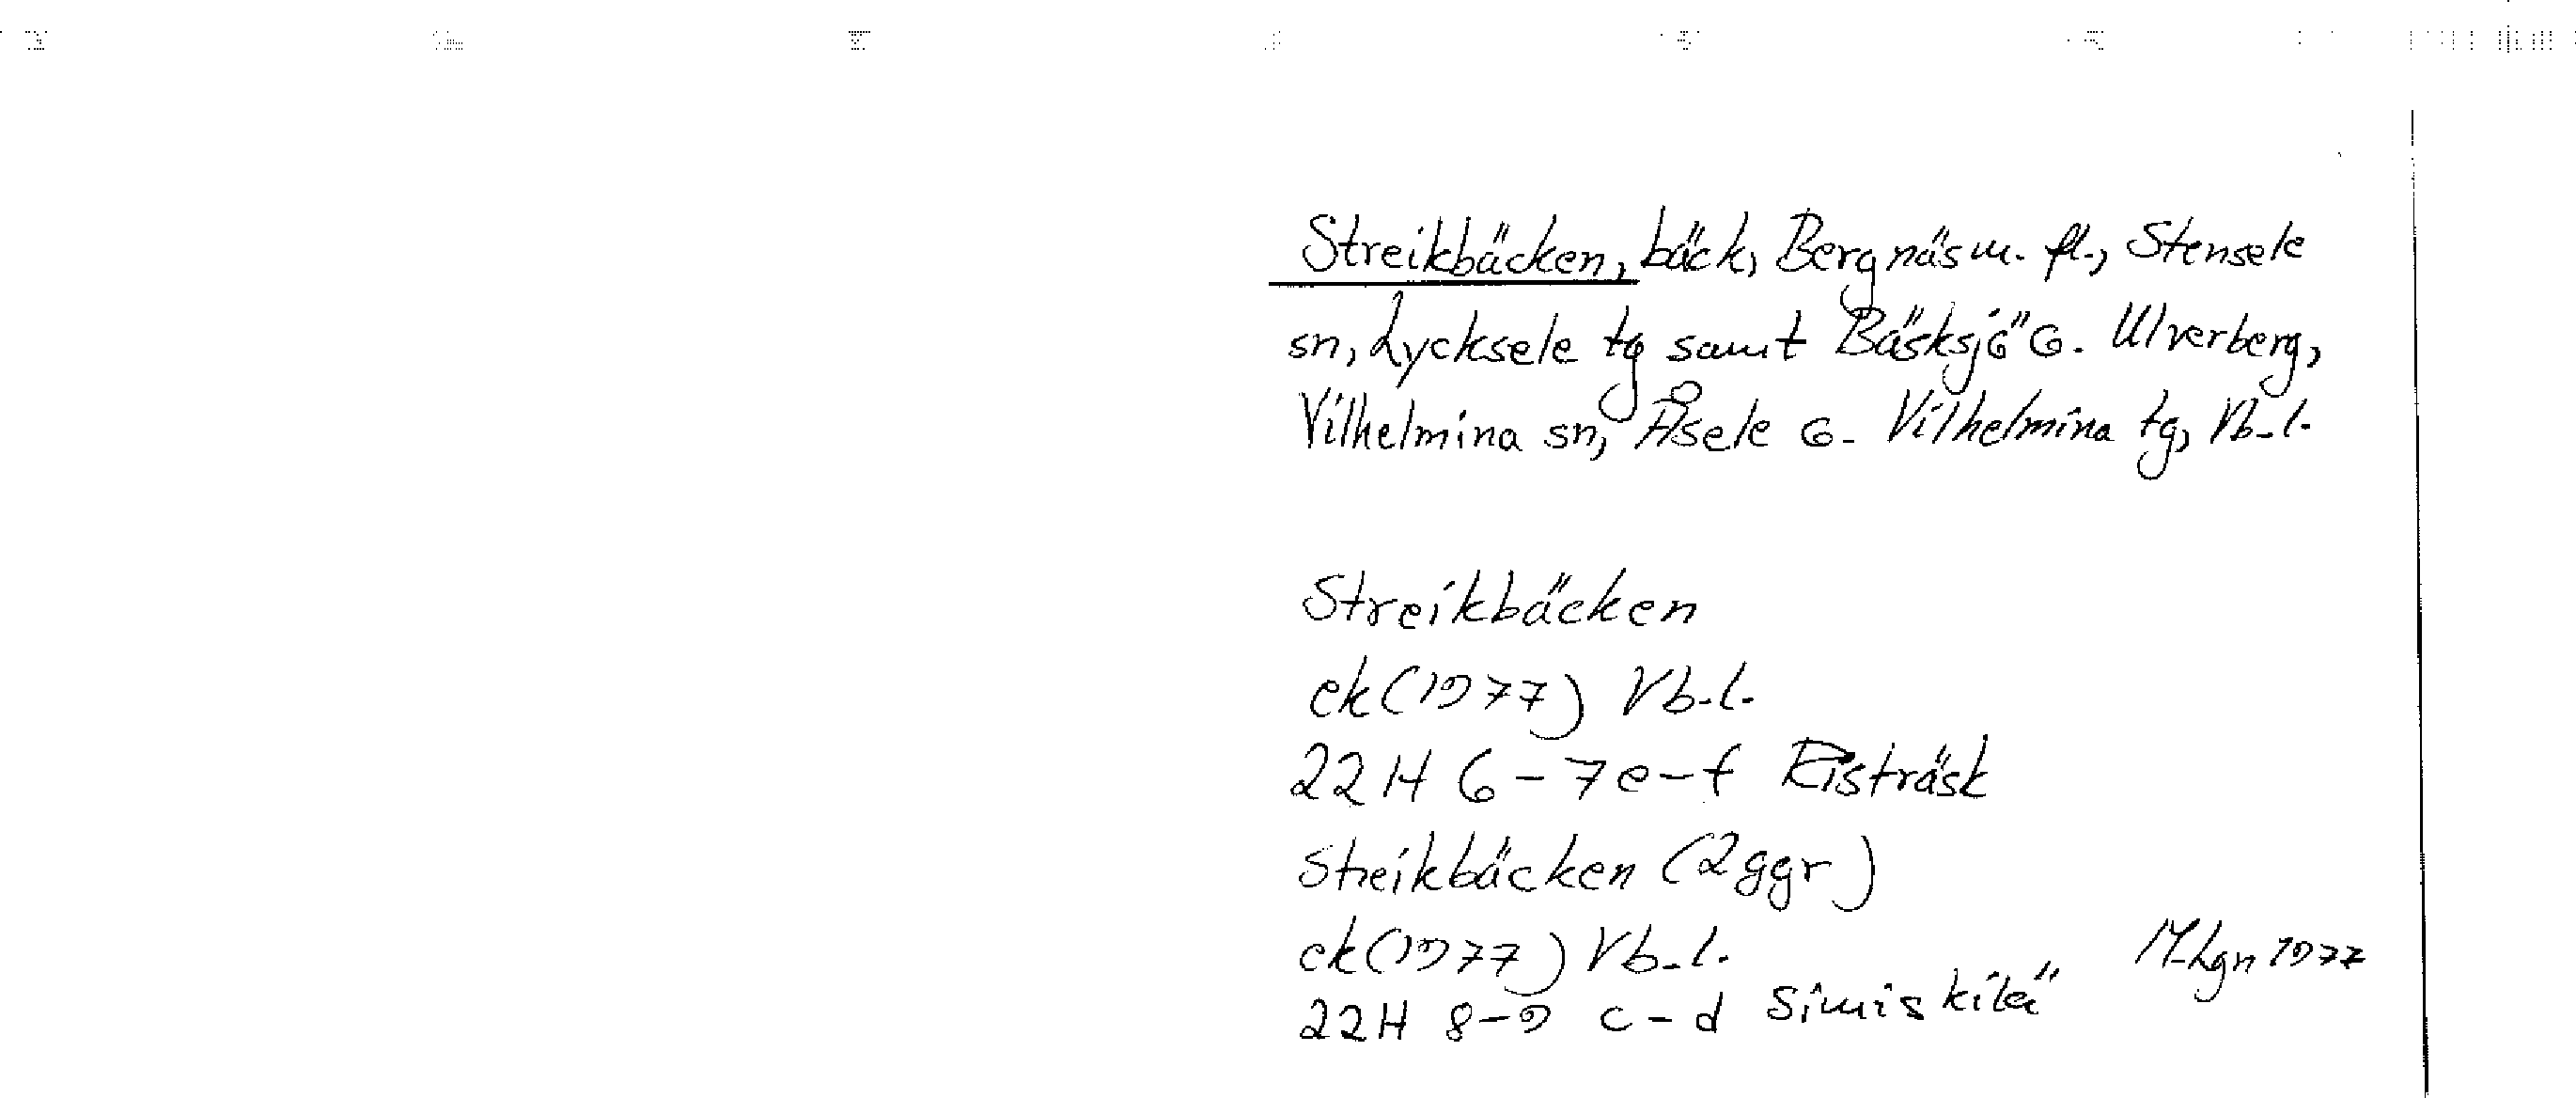 Streikbäcken, bäck, Bergnäs m. fl., Stensele
sn, Lycksele tg samt Bäsksjö o. Ulverberg,
Vilhelmina sn, Åsele o. Vilhelmina tg, Vb. l.
Streikbäcken
ek (1977) Vb. l.
22H 6-7 e-f Risträsk
Streikbäcken (2 ggr)
ek (1977) Vb. l.
22H 8-9 c-d Simiskilä
M-Lgn 1977